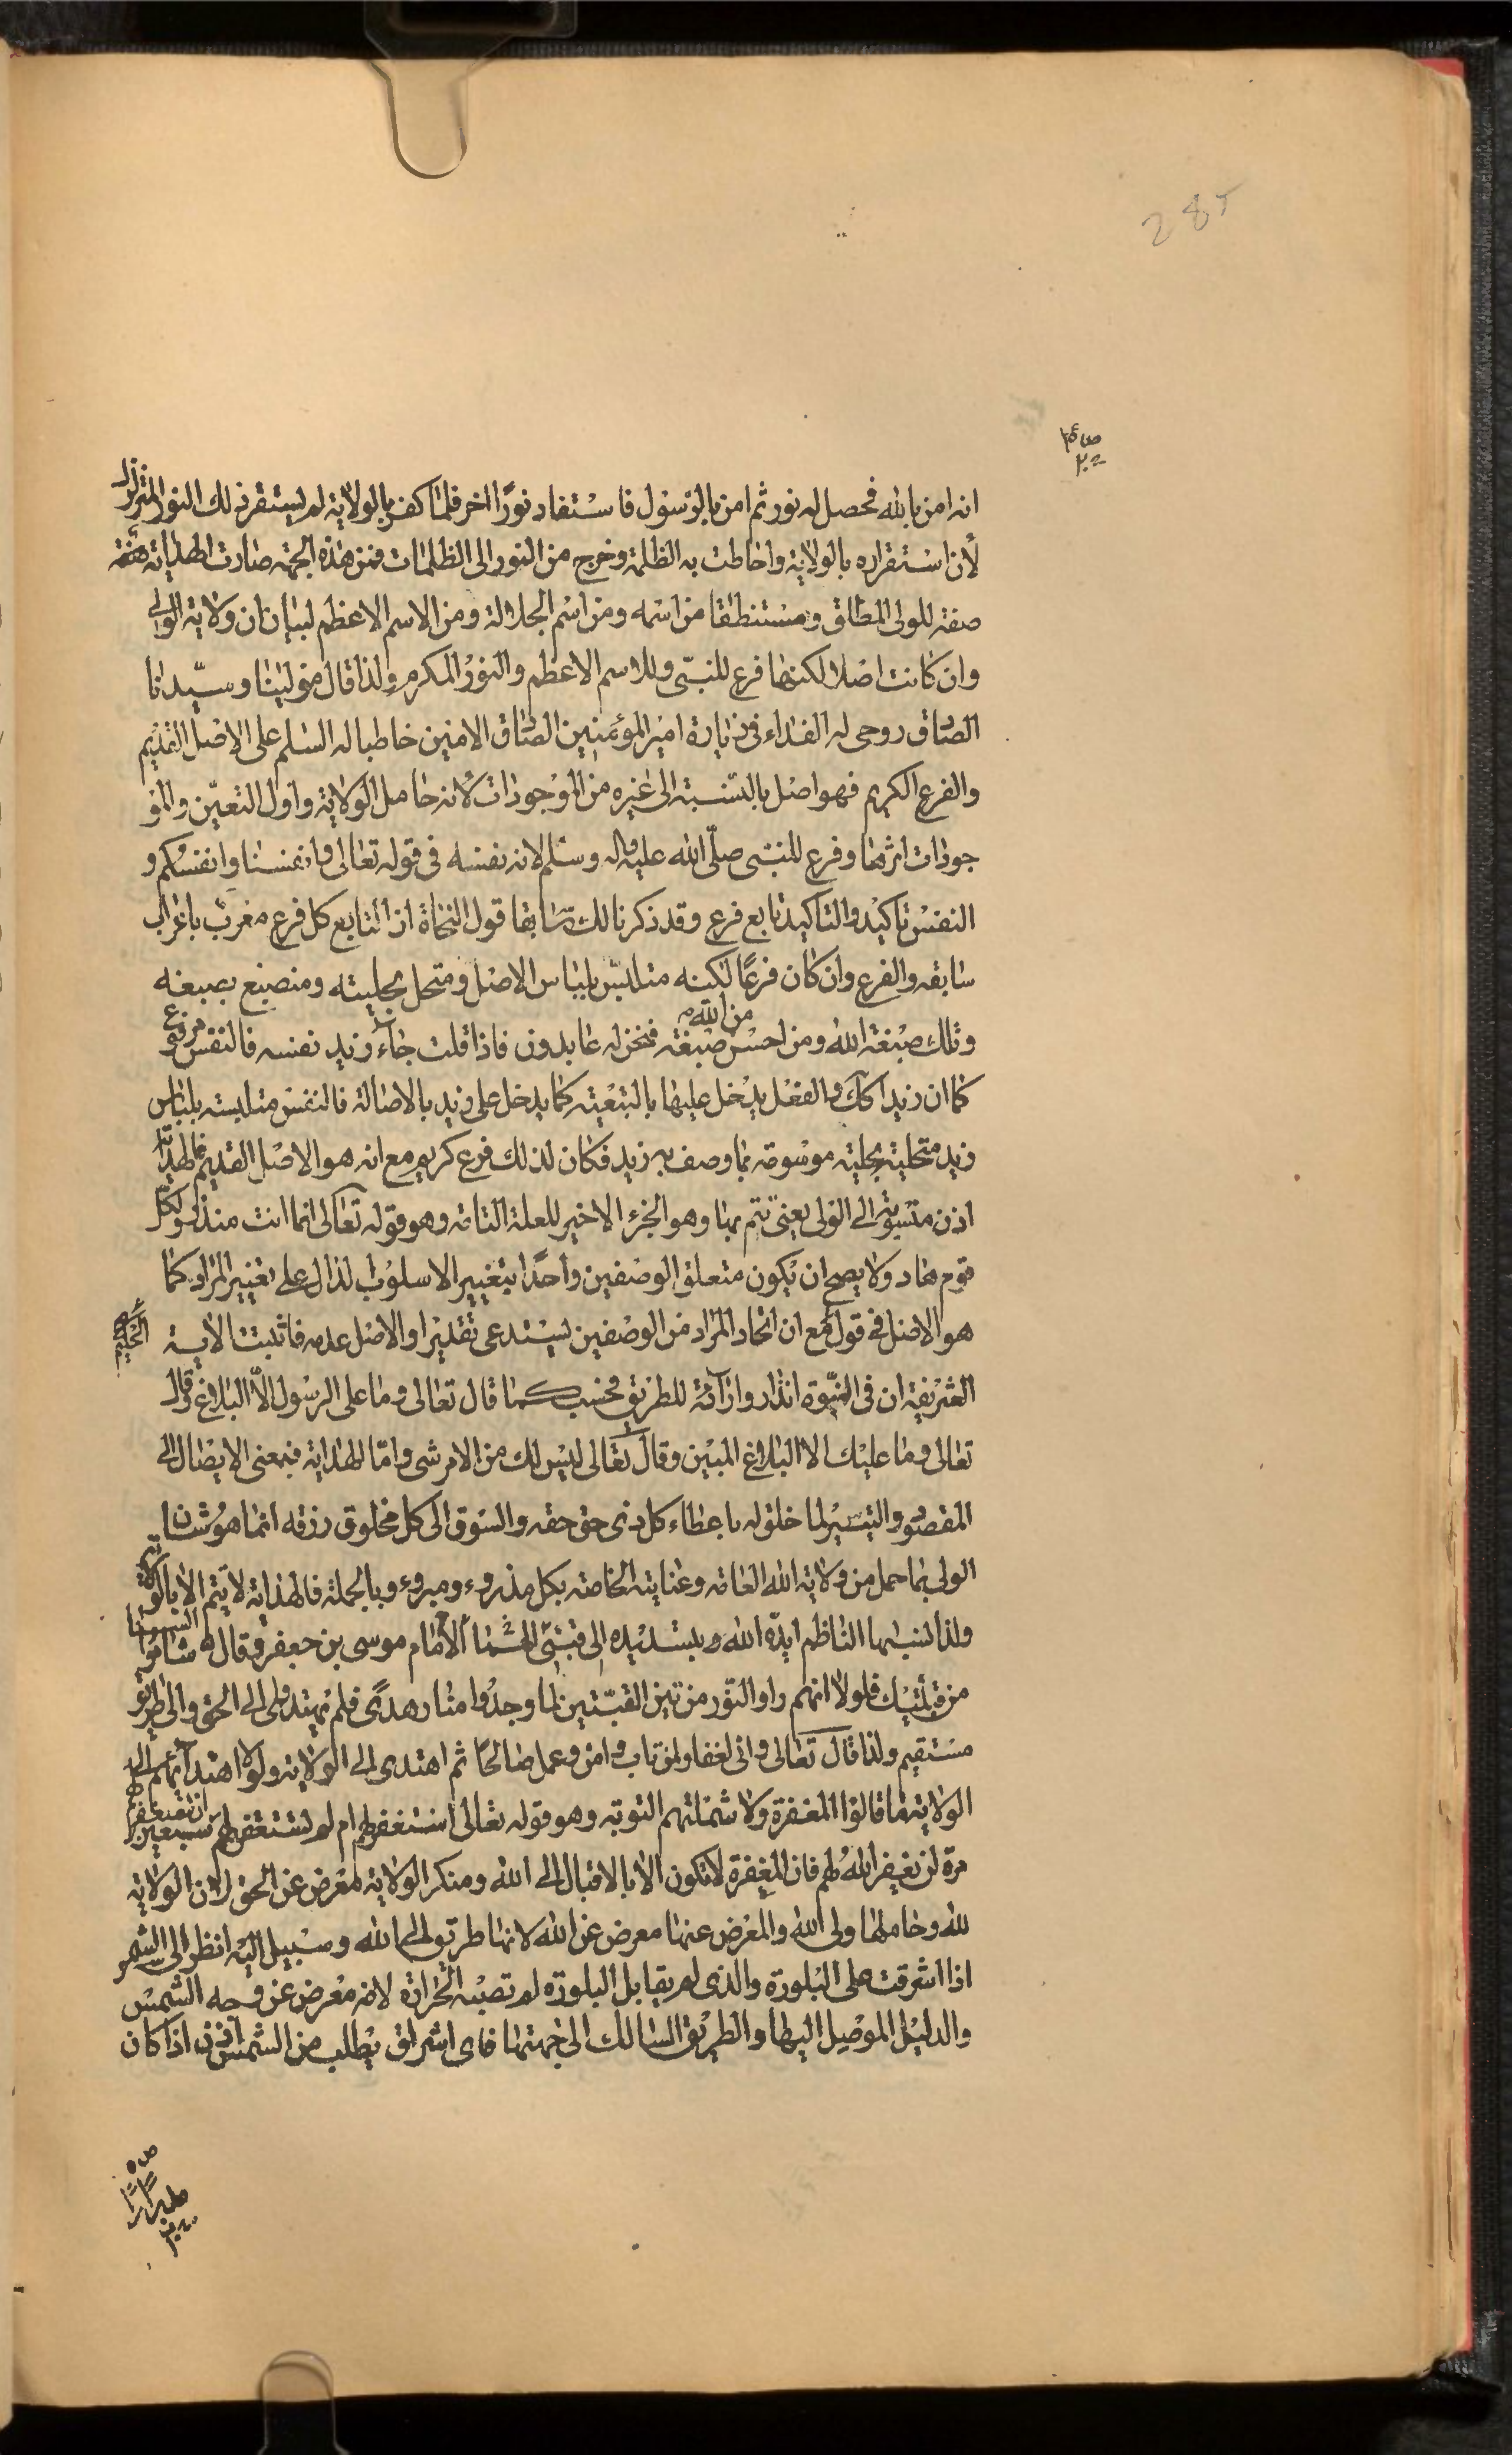 285
انه امن بالله فحصل له نور ثم امن بالرسول فاستفاد نورًا اخر فلما كفر بالولاية لم يستقر ذلك النور المتزلزل
لأن استقراره بالولاية واحاطت به الظلمة وخرج من النور الى الظلمات فمن هذه الجهة صارت الهداية
صفة للولى المطلق ومستنطقا من اسمه ومن اسم الجلالة ومن الاسم الاعظم لبيان ان ولاية الولى
وان كانت اصلا لكنها فرع للنبى وللاسم الاعظم والنور المكرم ولذا قال مولينا وسيدنا
الصادق روحى له الفداء فى زيارة امير المؤمنين الصادق الامين خاطبا له السلم على الاصل القديم
والفرع الكريم فهو اصل بالنسبة الى غيره من الموجودات لأنه حامل الولاية واول التعين والمو
جودات اثرها وفرع للنبى صلى الله عليه واله وسلم لانه نفسه فى قوله تعالى وانفسنا وانفسكم و
النفس تاكيد والتاكيد تابع فرع وقد ذكرنا لك سابقا قول النحاة اذ التابع كل فرع معرب باعراب
سابقه والفرع وان كان فرعًا لكنه متلبس بلباس الاصل ومتحل بحليته ومنصبغ بصبغه
وتلك صبغة الله ومن احسن من الله صبغة فنحن له عابدون فاذا قلت جاء زيد نفسه فالنفس مرفوع
كما ان زيدا كك والفعل يدخل عليها بالتبعية كما يدخل على زيد بالاصالة فالنفس متلبسة بلباس
زيد متحلية بحليته موسومة بما وصف به زيد فكان لذلك فرع كريم مع انه هو الاصل القديم فالهداية
اذن منسوبة الى الولى يعنى تتم بها وهو الجزء الاخير للعلة التامة وهو قوله تعالى انما انت منذر ولكل
قوم هاد ولا يصح ان يكون متعلق الوصفين واحدًا بتغيير الاسلوب لدال على تغيير المراد كما
هو الاصل فى قول الحكيم مع ان اتحاد المراد من الوصفين يستدعى تقديرا والاصل عدمه فاثبتت الاية
الشريفة ان فى النبوة انذار وارائة للطريق فحسب كما قال تعالى وما على الرسول الا البلاغ وقال
تعالى وما عليك الا البلاغ المبين وقال تعالى ليس لك من الامر شى واما الهداية فبمعنى الايصال الى
المقصود والتيسير لما خلق له باعطاء كل ذى حق حقه والسوق الى كل مخلوق رزقه انما هو شان
الولى بما حمل من ولاية الله العامة وعنايته الخاصة بكل مذروء ومبروء وبالجملة فالهداية لا تتم الا بالولاية
ولذا نسبها الناظم ايده الله وبتسديده الى قبتى الامام موسى بن جعفر فقال شاموا السنا
من قبتيك فلولا انهم راوا النور من تين القبتين لما وجدوا منار هدى فلم يهتدوا الى الحق والى طريق
مستقيم ولذا قال تعالى وانى لغفار لمن تاب وامن وعمل صالحًا ثم اهتدى الى الولاية ولولا اهتدائهم الى
الولاية ما قالوا المغفرة ولا شملتهم التوبة وهو قوله تعالى استغفر لهم ام لم تستغفر لهم ان تستغفر لهم سبعين
مرة لن يغفر الله لهم فان المغفرة لا تكون الا بالاقبال الى الله ومنكر الولاية لمعرض عن الحق لان الولاية
لله وحاملها ولى الله والمعرض عنها معرض عن الله لانها طريق الى الله وسبيل اليه انظر الى الشمس
اذا اشرقت على البلورة والذى لم يقابل البلورة لم تصبه الحرارة لانه معرض عن وجه الشمس
والدليل الموصل اليها والطريق السالك الى جهتها فاى اشراق يطلب من الشمس اذن اذا كان